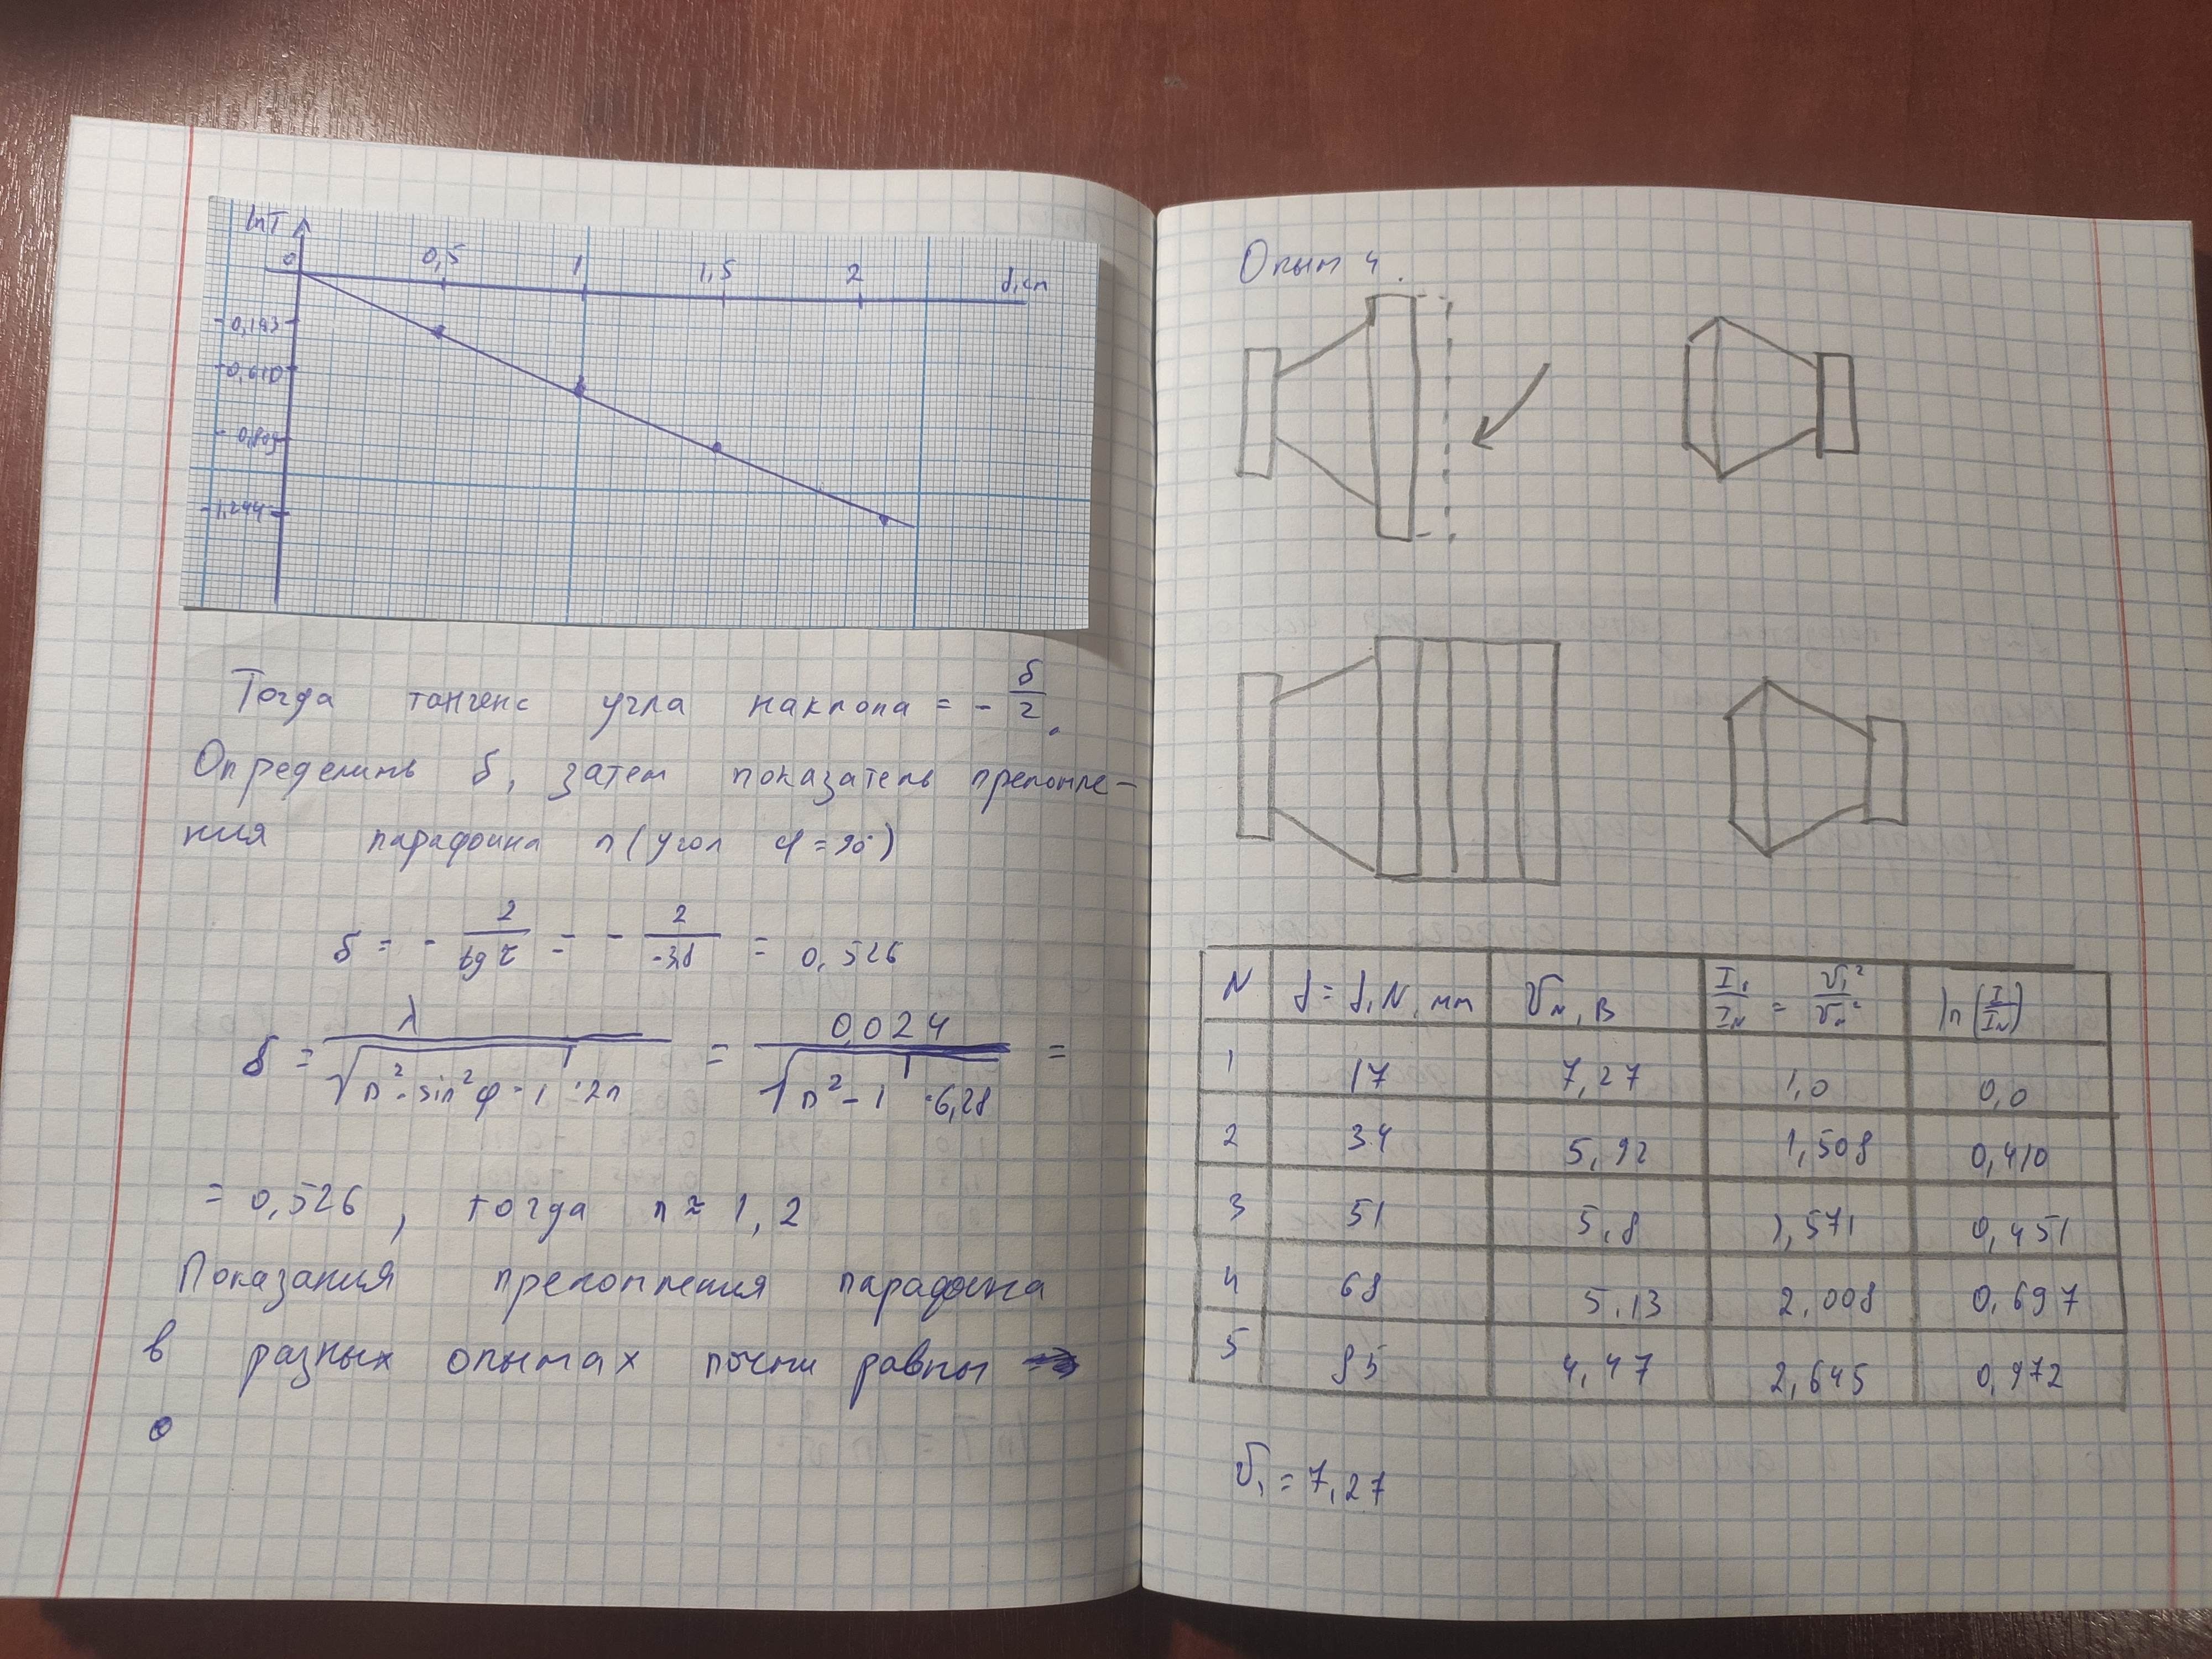 lnT
0
0,5
1
1,5
2
d, см
-0,193
-0,610
-0,809
-1,244
Тогда тангенс угла наклона = - δ/2.
Определить δ, затем показатель преломле-
ния парафина n (угол φ = 90°)
δ = - 2/tg τ = - 2/-3,8 = 0,526
δ = λ/√n²·sin²φ - 1 · 2π = 0,024/√n² - 1 · 6,28 =
= 0,526, тогда n ≈ 1,2
Показания преломления парафина
в разных опытах почти равны
Опыт 4.
N d = d₁N, мм Uₙ, В I₁/Iₙ = U₁²/Uₙ² ln(I/Iₙ)
1 17 7,27 1,0 0,0
2 34 5,92 1,508 0,410
3 51 5,8 1,571 0,451
4 68 5,13 2,008 0,697
5 85 4,47 2,645 0,972
U₁ = 7,27